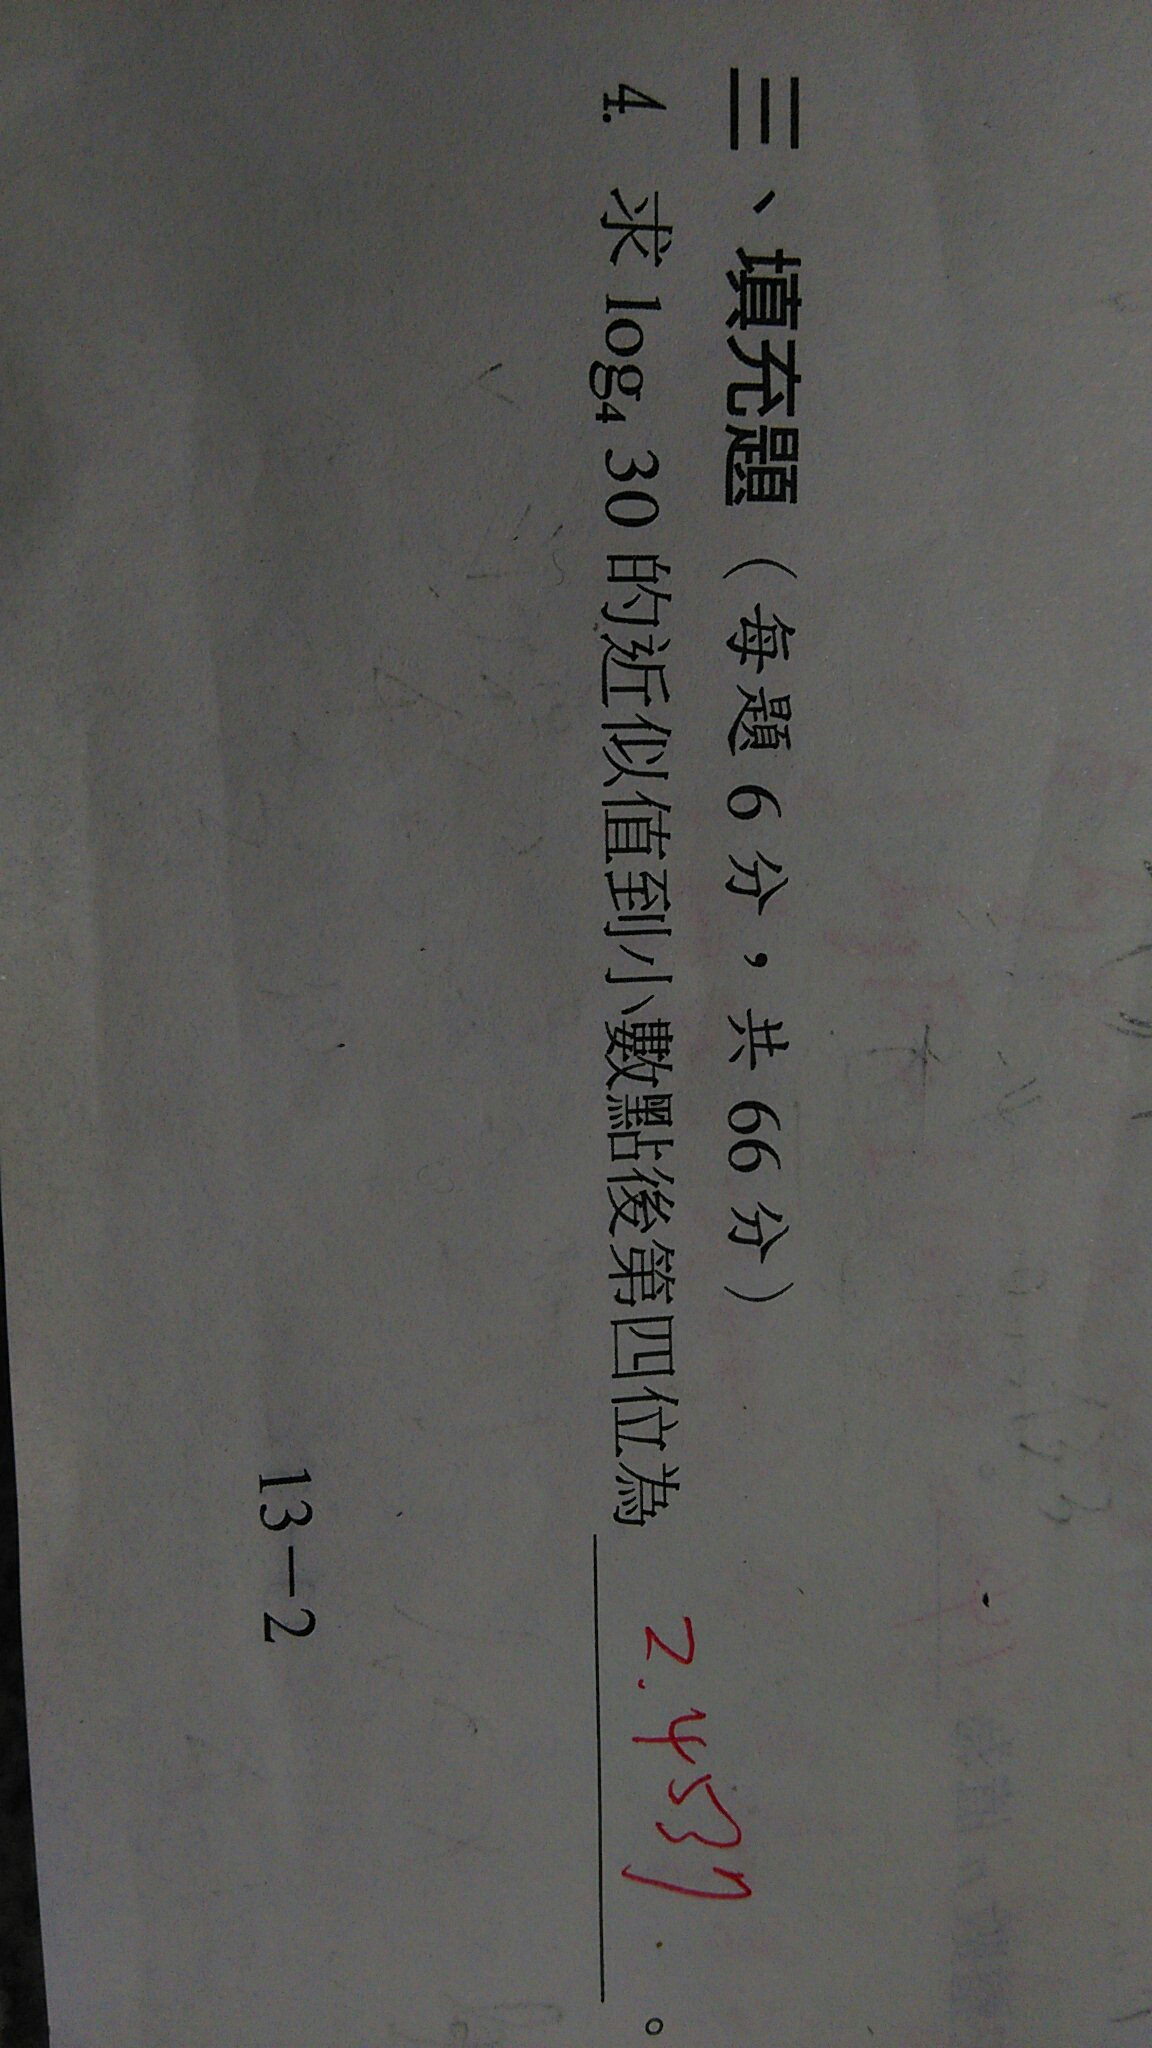 三、填充題（每題 6 分，共 66 分）
4. 求 log₄ 30 的近似值到小數點後第四位為 2.4537 。
13－2